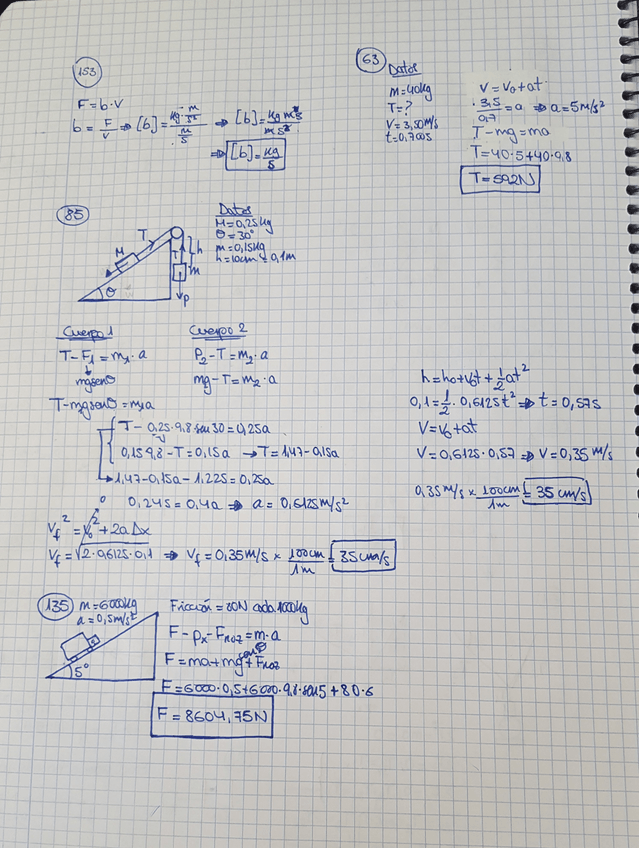 153
F=b·V
b = F/V ⇒ [b] = kg m/s² / m/s ⇒ [b] = kg m s / m s²
⇒ [b] = kg/s
63
Datos
m=40kg
T=?
V=3,50m/s
t=0,700s
V=V₀+at
3,5/0,7=a ⇒ a=5m/s²
T-mg=ma
T=40·5+40·9,8
T=592N
85
T
M
T
h
m
θ
P
Datos
M=0,25kg
θ=30°
m=0,15kg
h=10cm 0,1m
Cuerpo 1
T-F₁=m₁·a
mgsenθ
T-mgsenθ=m₁a
Cuerpo 2
P₂-T=m₂·a
mg-T=m₂·a
T-0,25·9,8·sen30=0,25a
0,15·9,8-T=0,15a → T=1,47-0,15a
1,47-0,15a-1,225=0,25a
0,245=0,4a ⇒ a=0,6125m/s²
0
Vf²=V₀²+2aΔx
Vf=√2·0,6125·0,1 ⇒ Vf=0,35m/s × 100cm/1m = 35cm/s
h=h₀+V₀t+½at²
0,1=½·0,6125t² ⇒ t=0,57s
V=V₀+at
V=0,6125·0,57 ⇒ V=0,35m/s
0,35m/s × 100cm/1m = 35cm/s
135
m=6000kg
a=0,5m/s²
5°
Fricción=80N cada 1000kg
F-Px-Froz=m·a
F=ma+mgsenθ+Froz
F=6000·0,5+6000·9,8·sen5+80·6
F=8604,75N